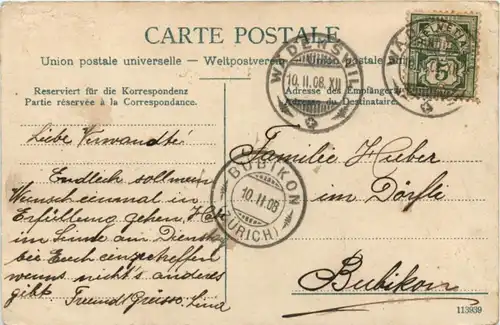 CARTE POSTALE
Union postale universelle — Weltpostverein — Unione postale
Reserviert für die Korrespondenz
Partie réservée à la Correspondance.
Adresse des Empfängers
Adresse du Destinataire.
WÄDENSWIL
10.II.08.XII
5
BUBIKON
10.II.08
(ZÜRICH)
Liebe Verwandte
Endlich soll mein
Wunsch einmal in
Erfüllung gehen,
im Sinde am Dienstag
bei Euch einzutreffen
wenns nicht's anderes
gibt. Freundl Grüsse Lina
Familie Huber
im Dörfli
Bubikon
113939